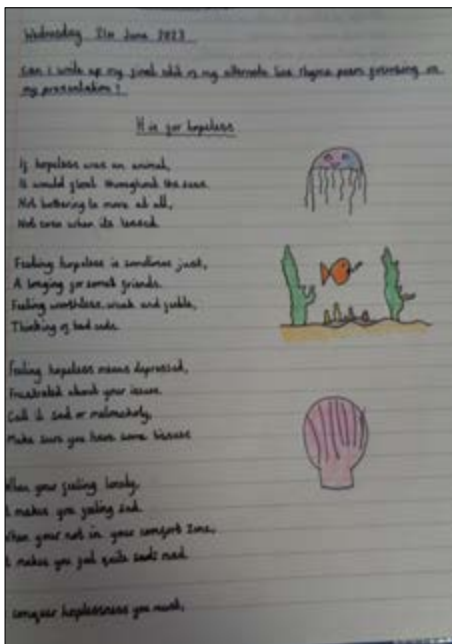 Wednesday 21st June 2023
Can I write up my final edit of my alternate line rhyme poem focusing on
my presentation?
H is for hopeless
If hopeless was an animal,
It would float throughout the seas.
Not bothering to move at all,
Not even when its teased.
Feeling hopeless is sometimes just,
A longing for some friends.
Feeling worthless, weak and feeble,
Thinking of bad ends.
Feeling hopeless means depressed,
Frustrated about your issue.
Call it sad or melancholy,
Make sure you have some tissue
When your feeling lonely,
makes you feeling sad.
When your not in your comfort zone,
makes you feel quite mad.
conquer hoplessness you must,